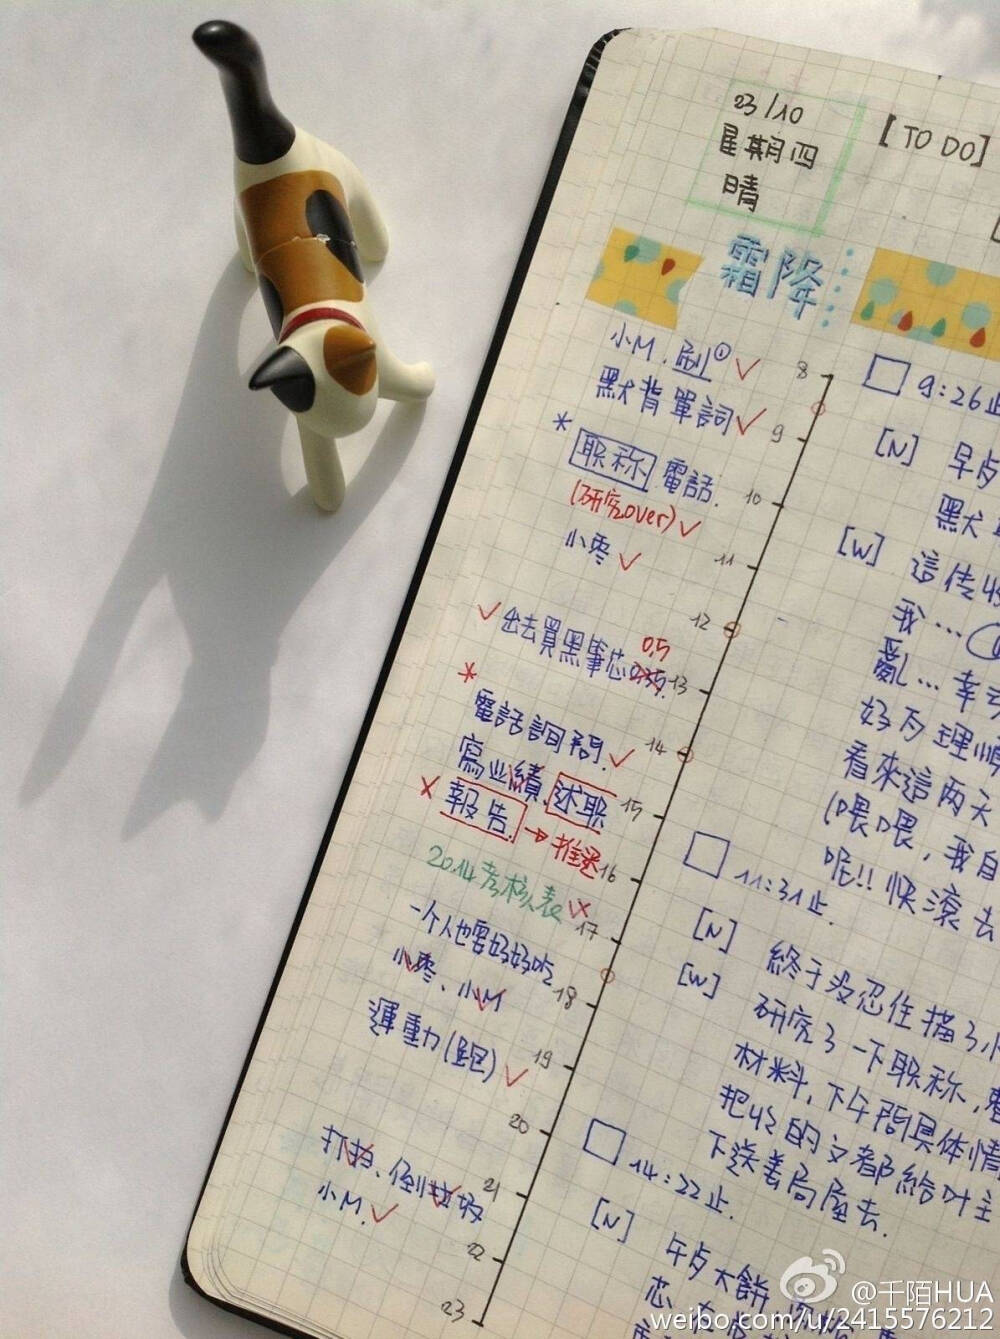 23/10
星期四
晴
【TO DO】
霜降
小M.刷①
默背單詞
* 职称 電話.
(研究over)
小枣
出去買黑筆芯0.5
*
電話詢問.
寫业績、述职
報告. → 推遲
2014考核表
一个人也要好好吃
小枣、小M
運動(跑)
打扫、倒垃圾
小M.
8
9
10
11
12
13
14
15
16
17
18
19
20
21
22
23
9:26止
[N] 早
默
[W] 這
我…
亂…幸
好
看來這两天
(喂喂,我自
呢!!快滾去
11:31止.
[N] 終于没忍住描了
[W] 研究了一下职称,
材料,下午問具体情
把 的文都給叶主
下送善局 去.
14:22止.
[N] 午 大餅
芯、
@千陌HUA
weibo.com/u/2415576212